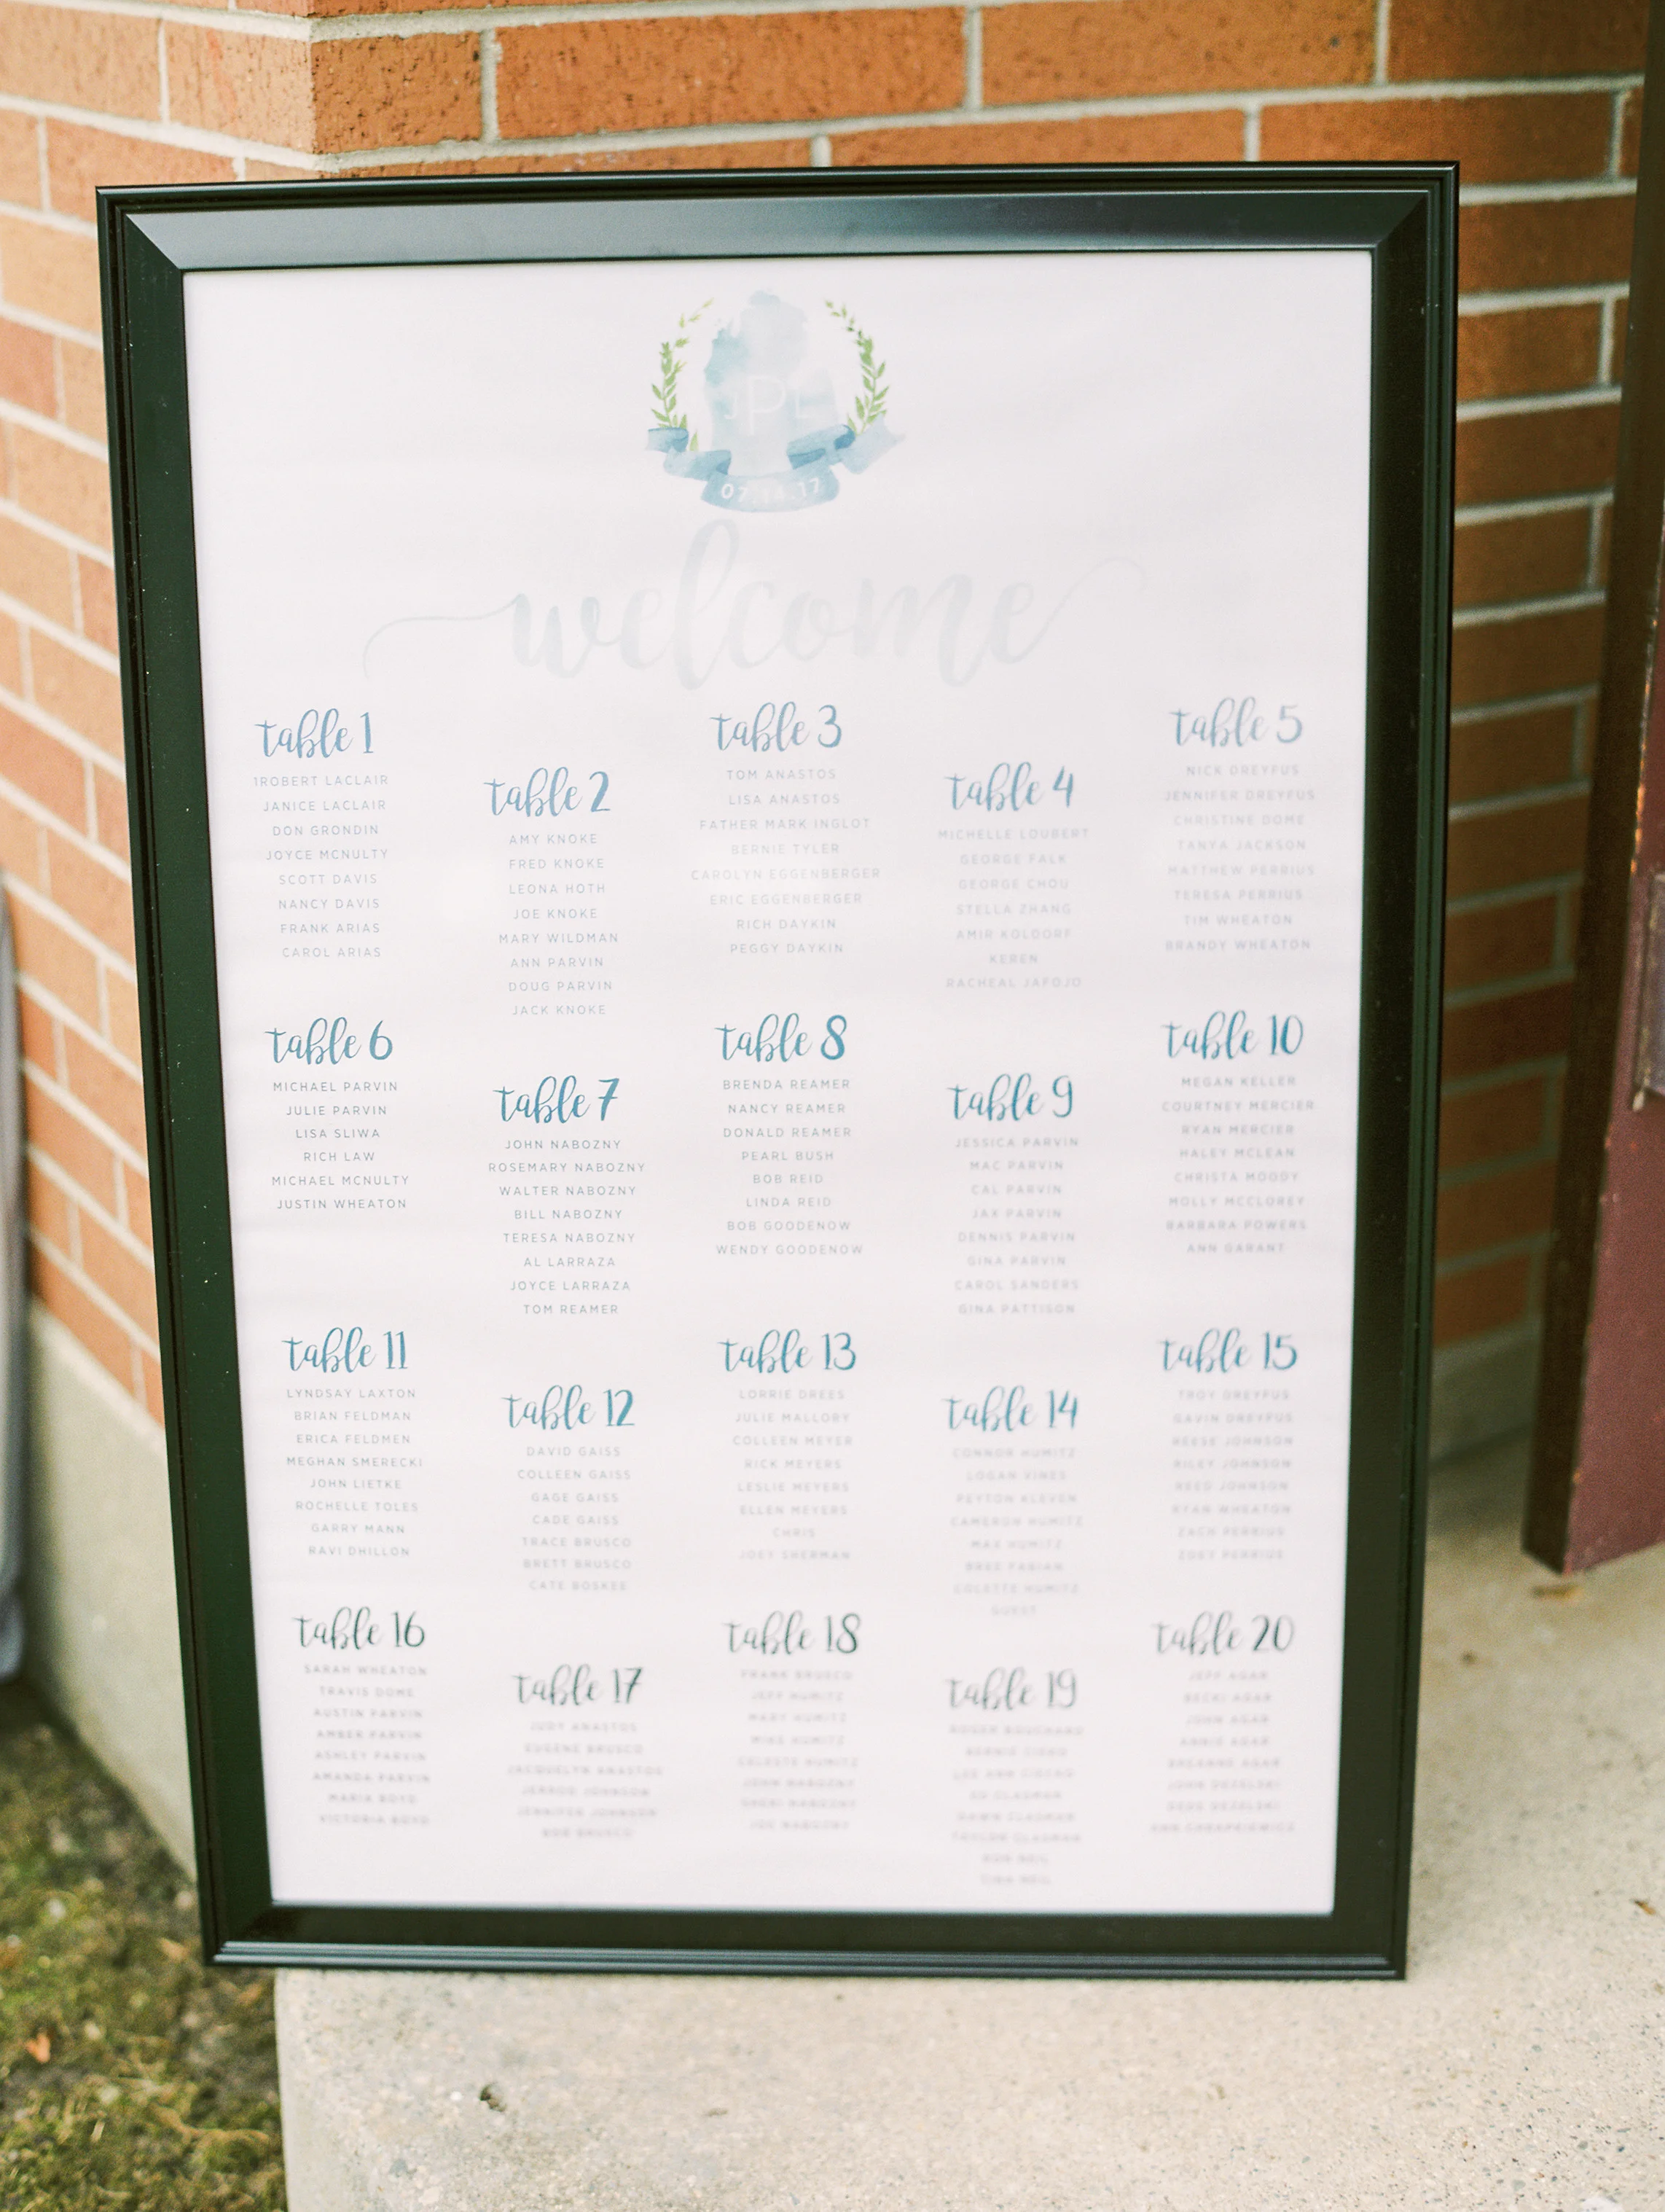 JPL
07.14.17
welcome
table 1
1ROBERT LACLAIR
JANICE LACLAIR
DON GRONDIN
JOYCE MCNULTY
SCOTT DAVIS
NANCY DAVIS
FRANK ARIAS
CAROL ARIAS
table 2
AMY KNOKE
FRED KNOKE
LEONA HOTH
JOE KNOKE
MARY WILDMAN
ANN PARVIN
DOUG PARVIN
JACK KNOKE
table 3
TOM ANASTOS
LISA ANASTOS
FATHER MARK INGLOT
BERNIE TYLER
CAROLYN EGGENBERGER
ERIC EGGENBERGER
RICH DAYKIN
PEGGY DAYKIN
table 4
MICHELLE LOUBERT
GEORGE FALK
GEORGE CHOU
STELLA ZHANG
AMIR KOLDORF
KEREN
RACHEAL JAFOJO
table 5
NICK DREYFUS
JENNIFER DREYFUS
CHRISTINE DOME
TANYA JACKSON
MATTHEW PERRIUS
TERESA PERRIUS
TIM WHEATON
BRANDY WHEATON
table 6
MICHAEL PARVIN
JULIE PARVIN
LISA SLIWA
RICH LAW
MICHAEL MCNULTY
JUSTIN WHEATON
table 7
JOHN NABOZNY
ROSEMARY NABOZNY
WALTER NABOZNY
BILL NABOZNY
TERESA NABOZNY
AL LARRAZA
JOYCE LARRAZA
TOM REAMER
table 8
BRENDA REAMER
NANCY REAMER
DONALD REAMER
PEARL BUSH
BOB REID
LINDA REID
BOB GOODENOW
WENDY GOODENOW
table 9
JESSICA PARVIN
MAC PARVIN
CAL PARVIN
JAX PARVIN
DENNIS PARVIN
GINA PARVIN
CAROL SANDERS
GINA PATTISON
table 10
MEGAN KELLER
COURTNEY MERCIER
RYAN MERCIER
HALEY MCLEAN
CHRISTA MOODY
MOLLY MCCLOREY
BARBARA POWERS
ANN GARANT
table 11
LYNDSAY LAXTON
BRIAN FELDMAN
ERICA FELDMEN
MEGHAN SMERECKI
JOHN LIETKE
ROCHELLE TOLES
GARRY MANN
RAVI DHILLON
table 12
DAVID GAISS
COLLEEN GAISS
GAGE GAISS
CADE GAISS
TRACE BRUSCO
BRETT BRUSCO
CATE BOSKEE
table 13
LORRIE DREES
JULIE MALLORY
COLLEEN MEYER
RICK MEYERS
LESLIE MEYERS
ELLEN MEYERS
CHRIS
JOEY SHERMAN
table 14
CONNOR HUMITZ
LOGAN VINES
PEYTON KLEVEN
CAMERON HUMITZ
MAX HUMITZ
BREE FABIAN
COLETTE HUMITZ
GUEST
table 15
TROY DREYFUS
GAVIN DREYFUS
REESE JOHNSON
RILEY JOHNSON
REED JOHNSON
RYAN WHEATON
ZACH PERRIUS
ZOEY PERRIUS
table 16
SARAH WHEATON
TRAVIS DOME
AUSTIN PARVIN
AMBER PARVIN
ASHLEY PARVIN
AMANDA PARVIN
MARIA BOYD
VICTORIA BOYD
table 17
JUDY ANASTOS
EUGENE BRUSCO
JACQUELYN ANASTOS
JERROD JOHNSON
JENNIFER JOHNSON
BRUSCO
table 18
FRANK BRUSCO
JEFF HUMITZ
MARY HUMITZ
MIKE HUMITZ
CELESTE HUMITZ
JOHN NABOZNY
NABOZNY
JOE NABOZNY
table 19
ROGER
LEE ANN
ED
DAWN
TAYLOR
table 20
JEFF AGAR
BECKI AGAR
JOHN AGAR
ANNIE AGAR
BREANNE AGAR
JOHN
ANN